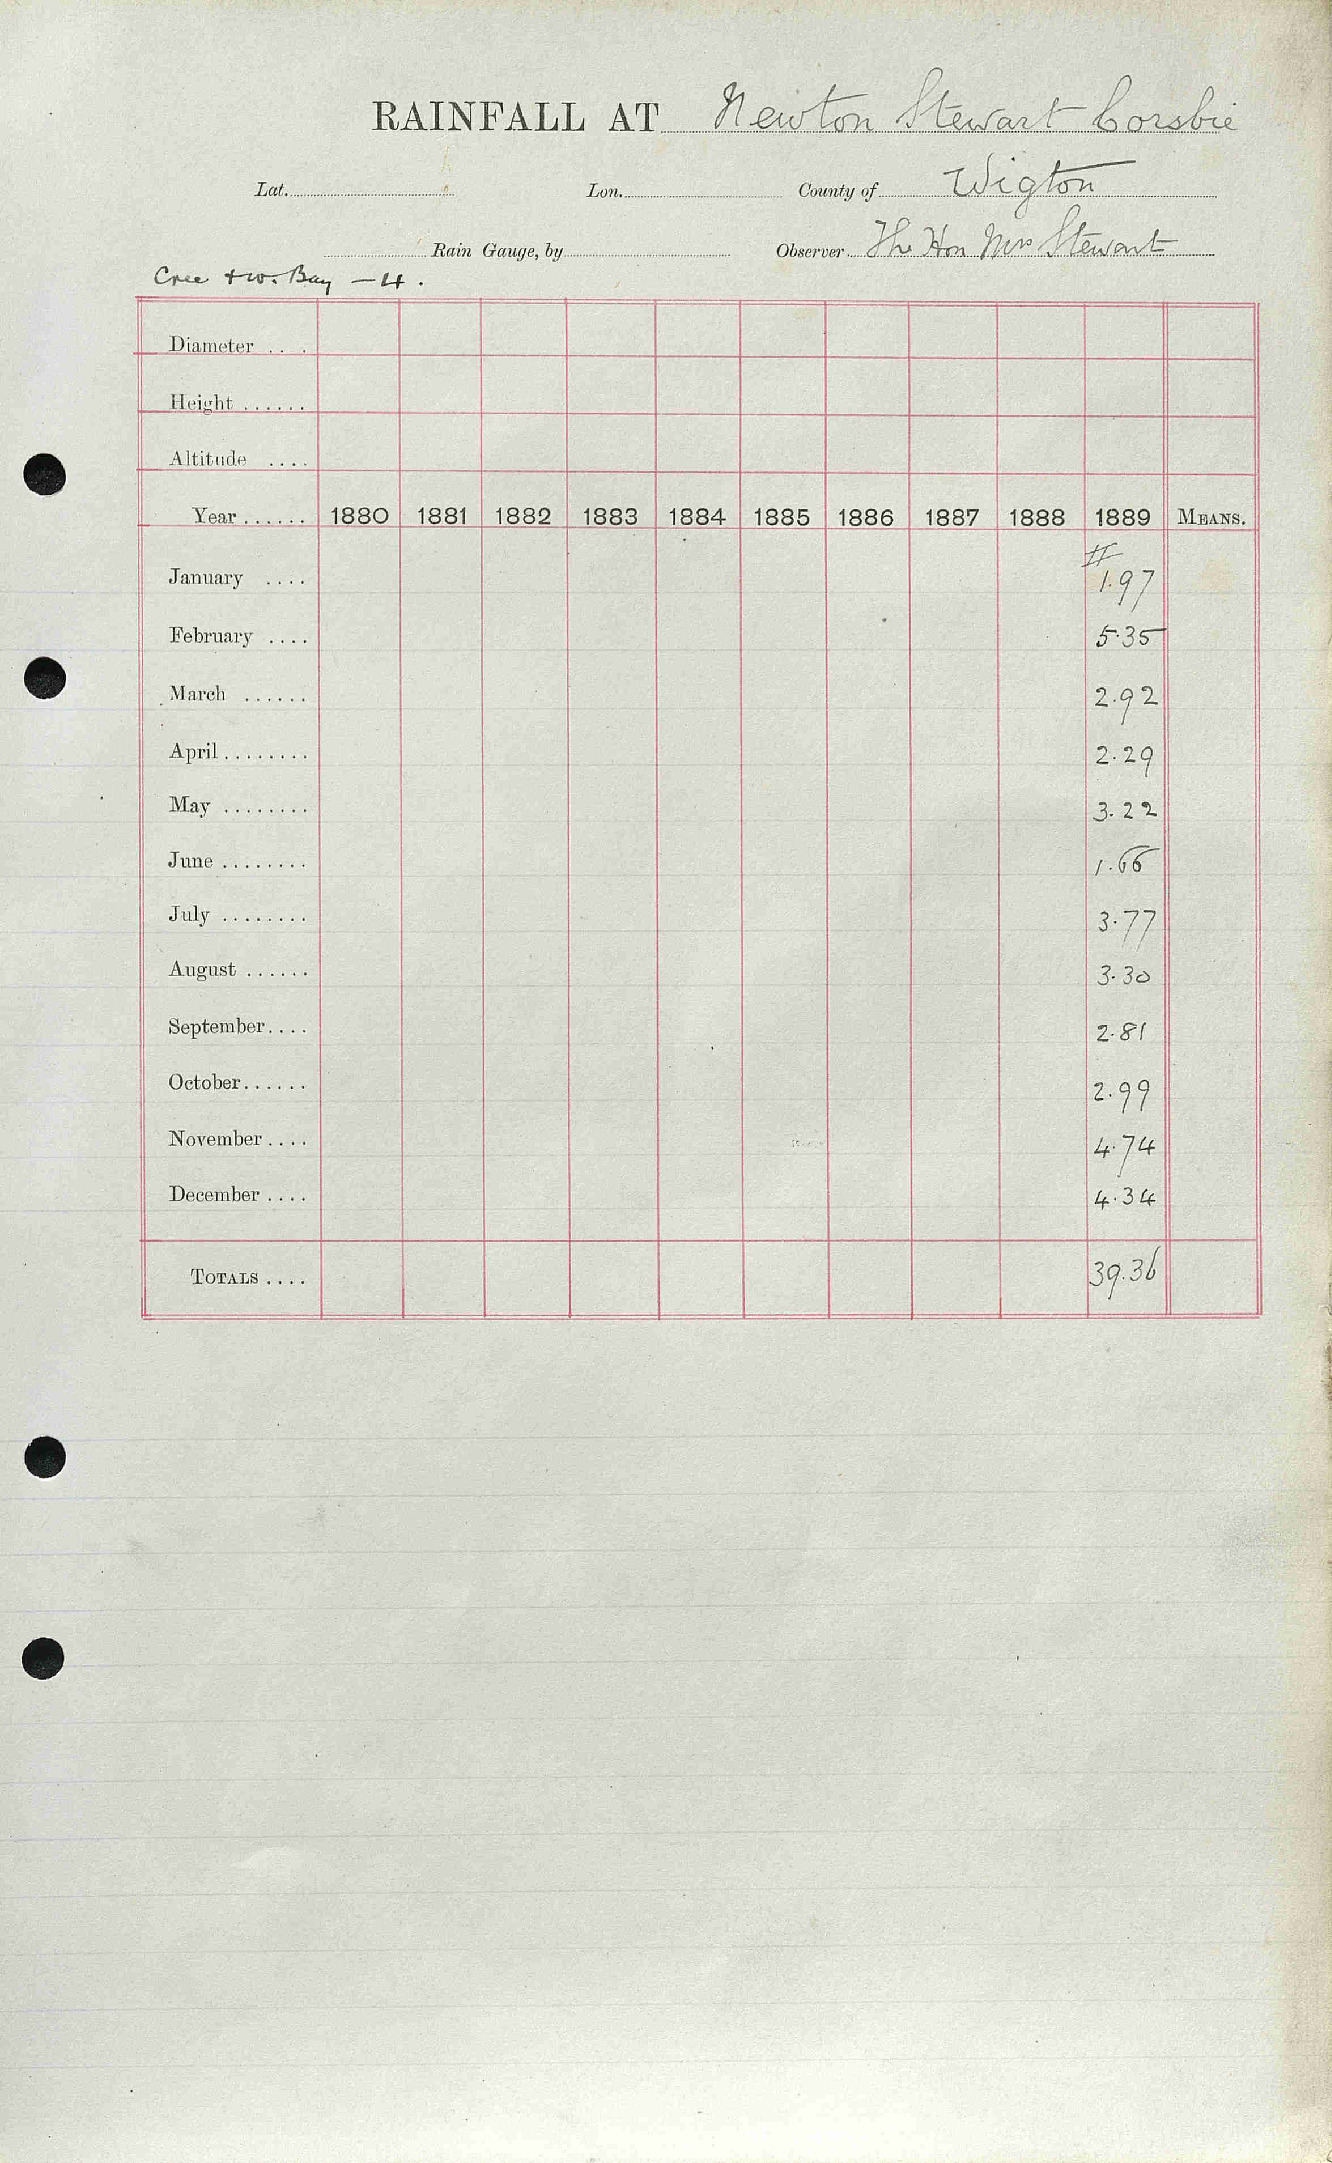 RAINFALL AT Newton Stewart Corsbie
Lat. Lon. County of Wigton
Rain Gauge, by Observer The Hon Mrs Stewart
Cree + W. Bay — 4.
Diameter ....
Height ......
Altitude ....
Year ...... 1880 1881 1882 1883 1884 1885 1886 1887 1888 1889 MEANS.
#
January .... 1.97
February .... 5.35
March ...... 2.92
April ........ 2.29
May ........ 3.22
June ........ 1.66
July ........ 3.77
August ...... 3.30
September.... 2.81
October...... 2.99
November .... 4.74
December .... 4.34
TOTALS .... 39.36